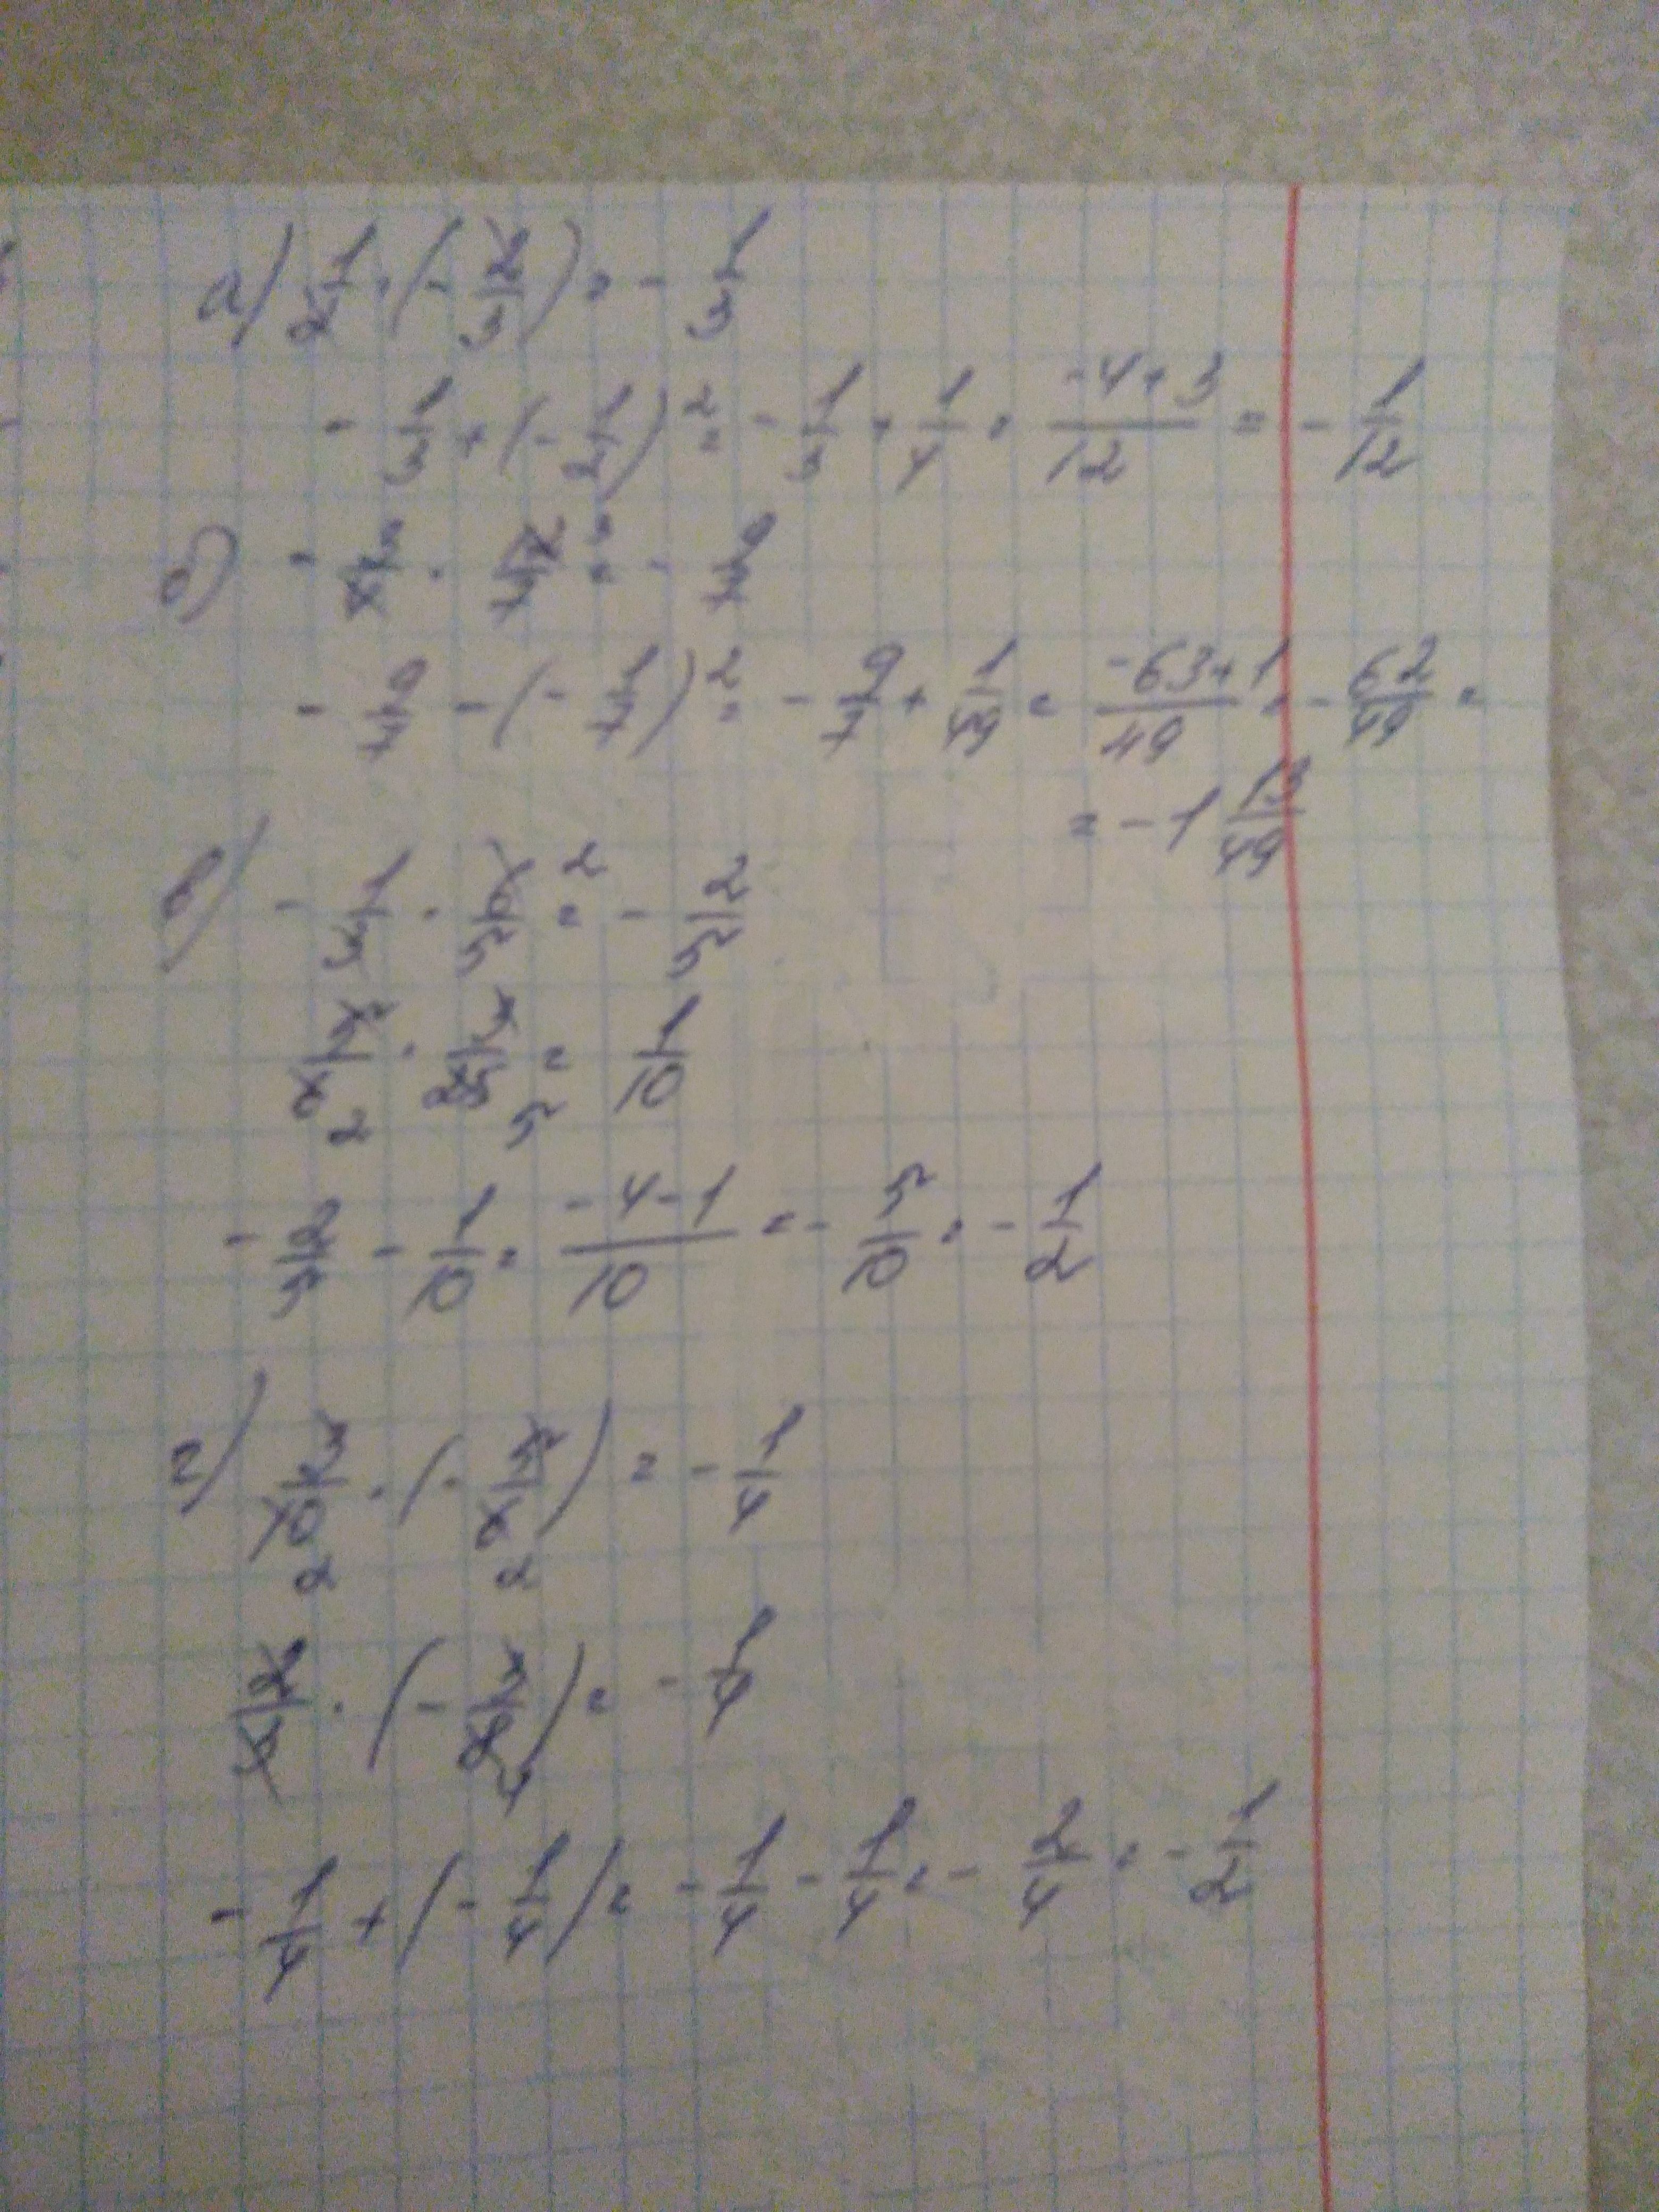 а) 1/2 · (- 2/3) = - 1/3
- 1/3 + (- 1/2)² = - 1/3 + 1/4 = (-4+3)/12 = - 1/12
б) - 3/4 · 12/7 ³ = - 9/7
- 9/7 - (- 1/7)² = - 9/7 + 1/49 = (-63+1)/49 = - 62/49 =
= - 1 13/49
в) - 1/3 · 6/5 ² = - 2/5
5/6 · 3/25 = 1/10
2 5
- 2/5 - 1/10 = (-4-1)/10 = - 5/10 = - 1/2
г) 3/10 · (- 5/6) = - 1/4
2 2
2/3 · (- 3/8) = - 1/4
4
- 1/4 + (- 1/4) = - 1/4 - 1/4 = - 2/4 = - 1/2